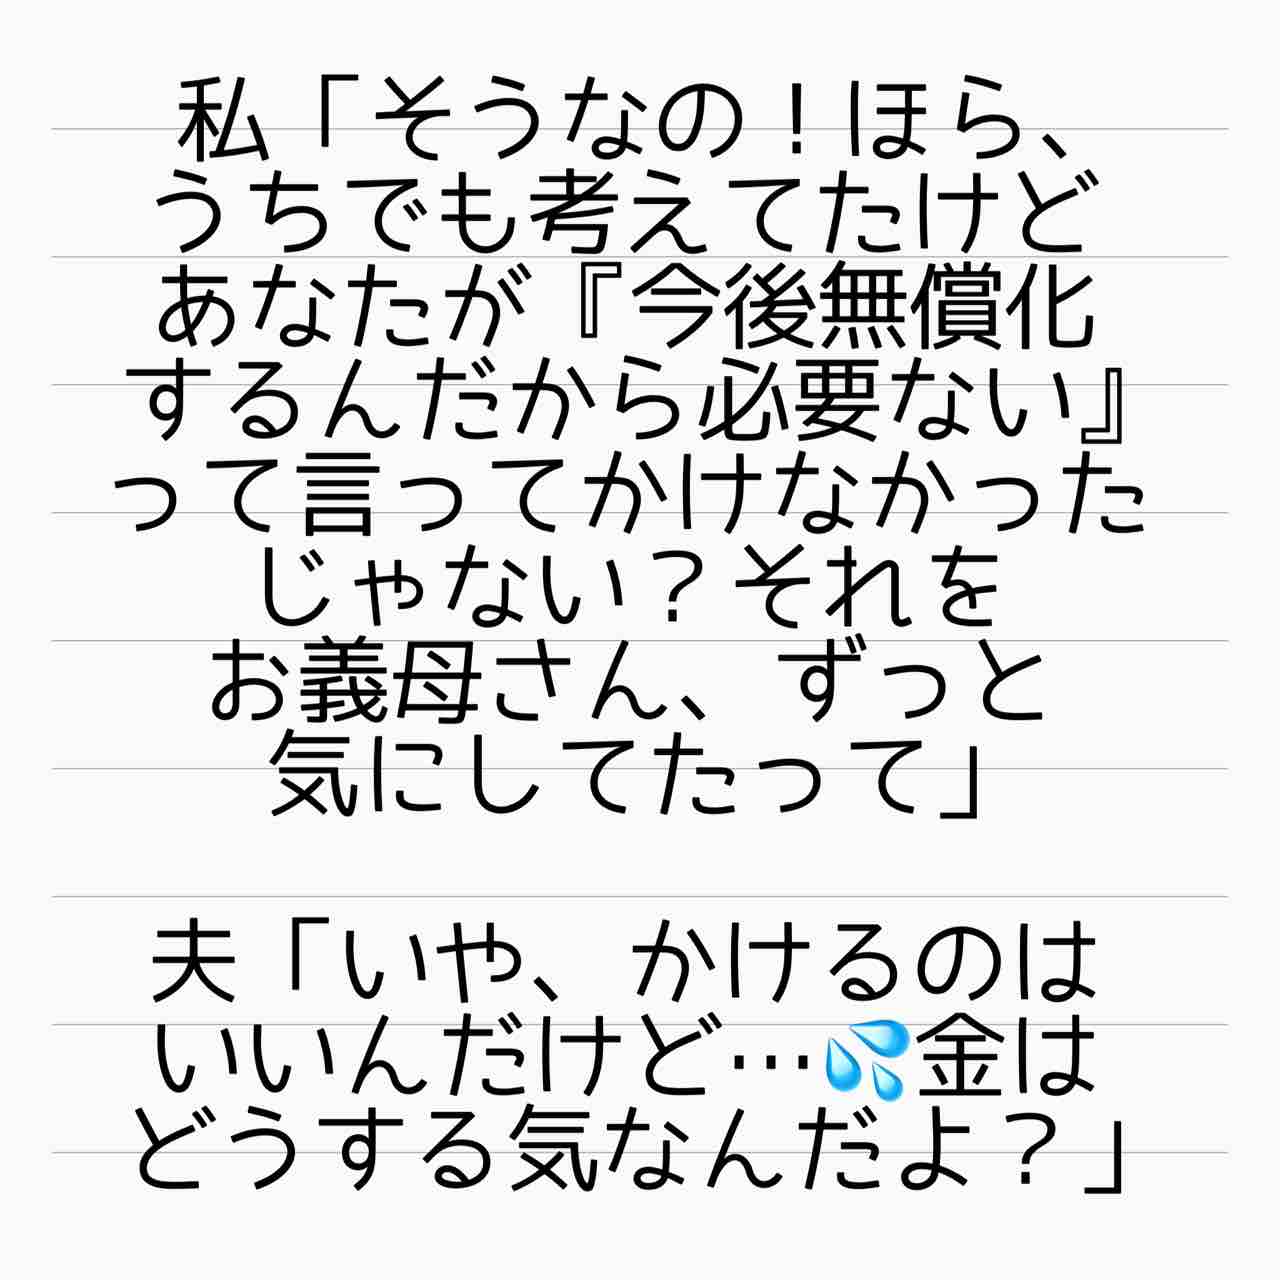 私「そうなの！ほら、
うちでも考えてたけど
あなたが『今後無償化
するんだから必要ない』
って言ってかけなかった
じゃない？それを
お義母さん、ずっと
気にしてたって」
夫「いや、かけるのは
いいんだけど…💦金は
どうする気なんだよ？」